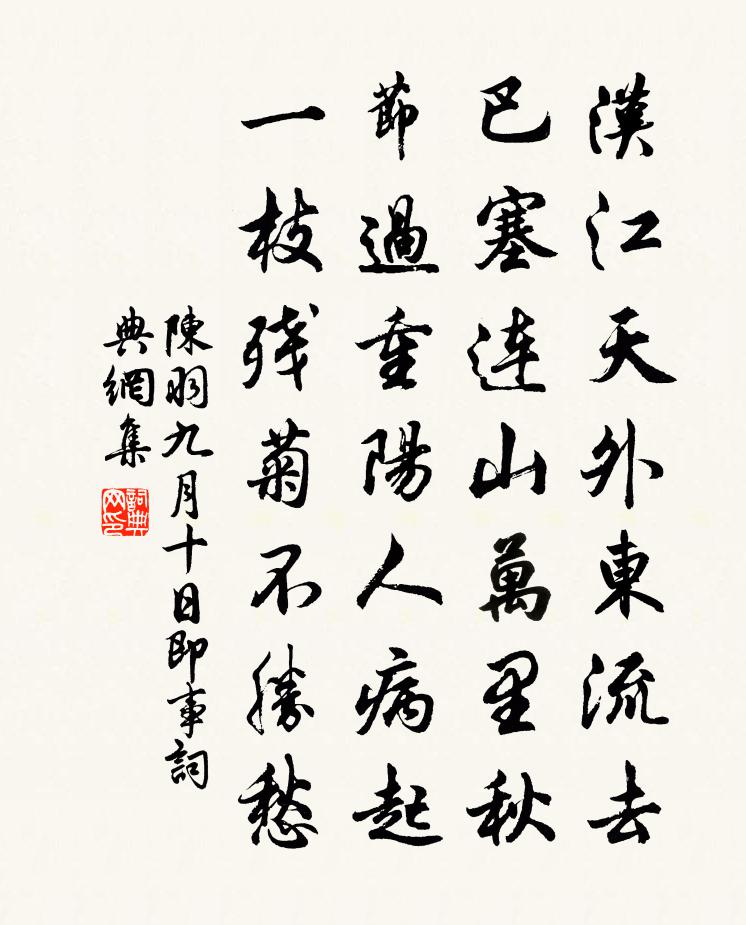 漢江天外東流去
巴塞連山萬里秋
節過重陽人病起
一枝殘菊不勝愁
陳羽九月十日即事詞
典網集
詞典網印